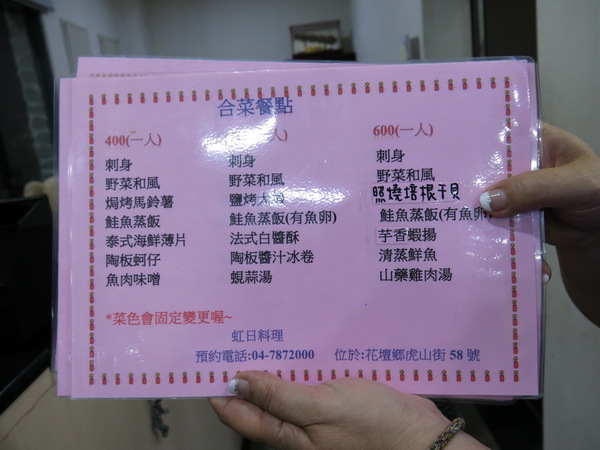 合菜餐點
400(一人)
刺身
野菜和風
焗烤馬鈴薯
鮭魚蒸飯
泰式海鮮薄片
陶板蚵仔
魚肉味噌
人)
刺身
野菜和風
鹽烤大
鮭魚蒸飯(有魚卵)
法式白醬酥
陶板醬汁冰卷
蜆蒜湯
600(一人)
刺身
野菜和風
照燒培根干貝
鮭魚蒸飯(有魚卵)
芋香蝦揚
清蒸鮮魚
山藥雞肉湯
*菜色會固定變更喔~
虹日料理
預約電話:04-7872000 位於:花壇鄉虎山街 58 號